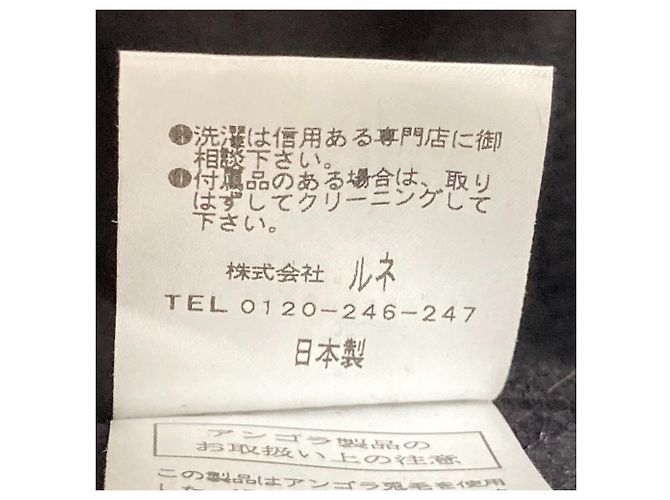 ●洗濯は信用ある専門店に御
相談下さい。
●付属品のある場合は、取り
はずしてクリーニングして
下さい。
株式会社 ルネ
TEL 0120-246-247
日本製
アンゴラ製品の
お取扱い上の注意
この製品はアンゴラ兎毛を使用